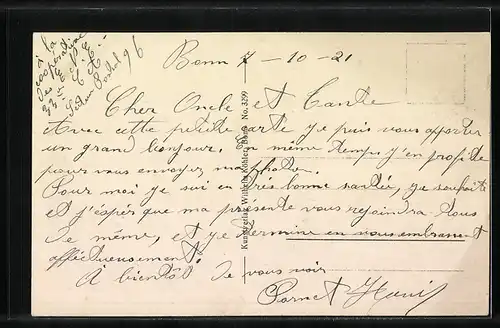 à la
coopérative
des E.P.E
33ème C.A.
Secteur Postal 96
Bonn 7-10-21
Cher Oncle et Tante
Avec cette petite carte je puis vous apporter
un grand bonjour. En même temps j'en profite
pour vous envoyez ma photo.
Pour moi je sui en très bonne santée, je souhaite
et j'éspér que ma présente vous rejoindra tous
de même, et je termine en vous embrassant
afféctueusement.
À bientôt de vous voir
Kunstverlag Wilhelm Köhler, Bonn No. 3399